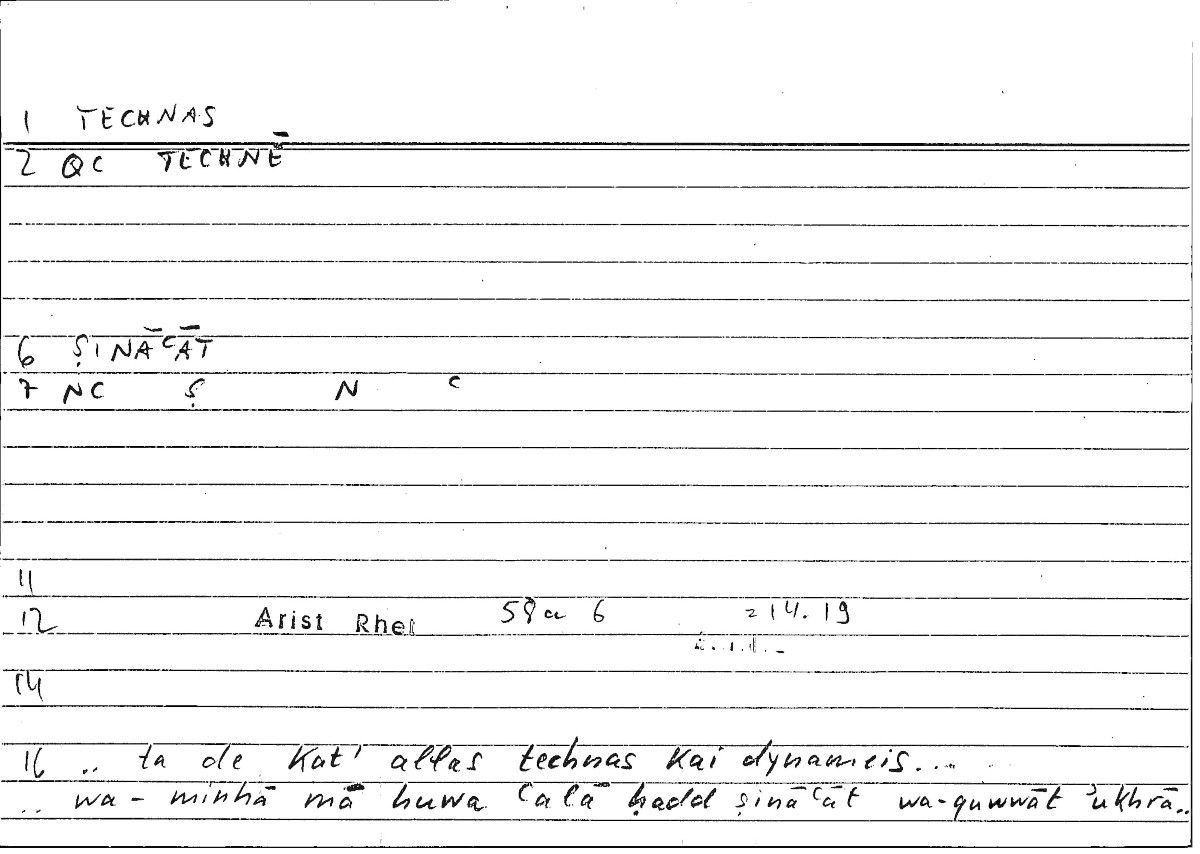 1 TECHNAS
2 QC TECHNĒ
6 ṢINĀʿĀT
7 NC Ṣ N ʿ
11
12 Arist Rhet 58a 6 = 14.19
14
16 .. ta de kat' allas technas kai dynameis...
.. wa-minhā mā huwa ʿalā ḥadd ṣināʿāt wa-quwwāt ʾukhrā..